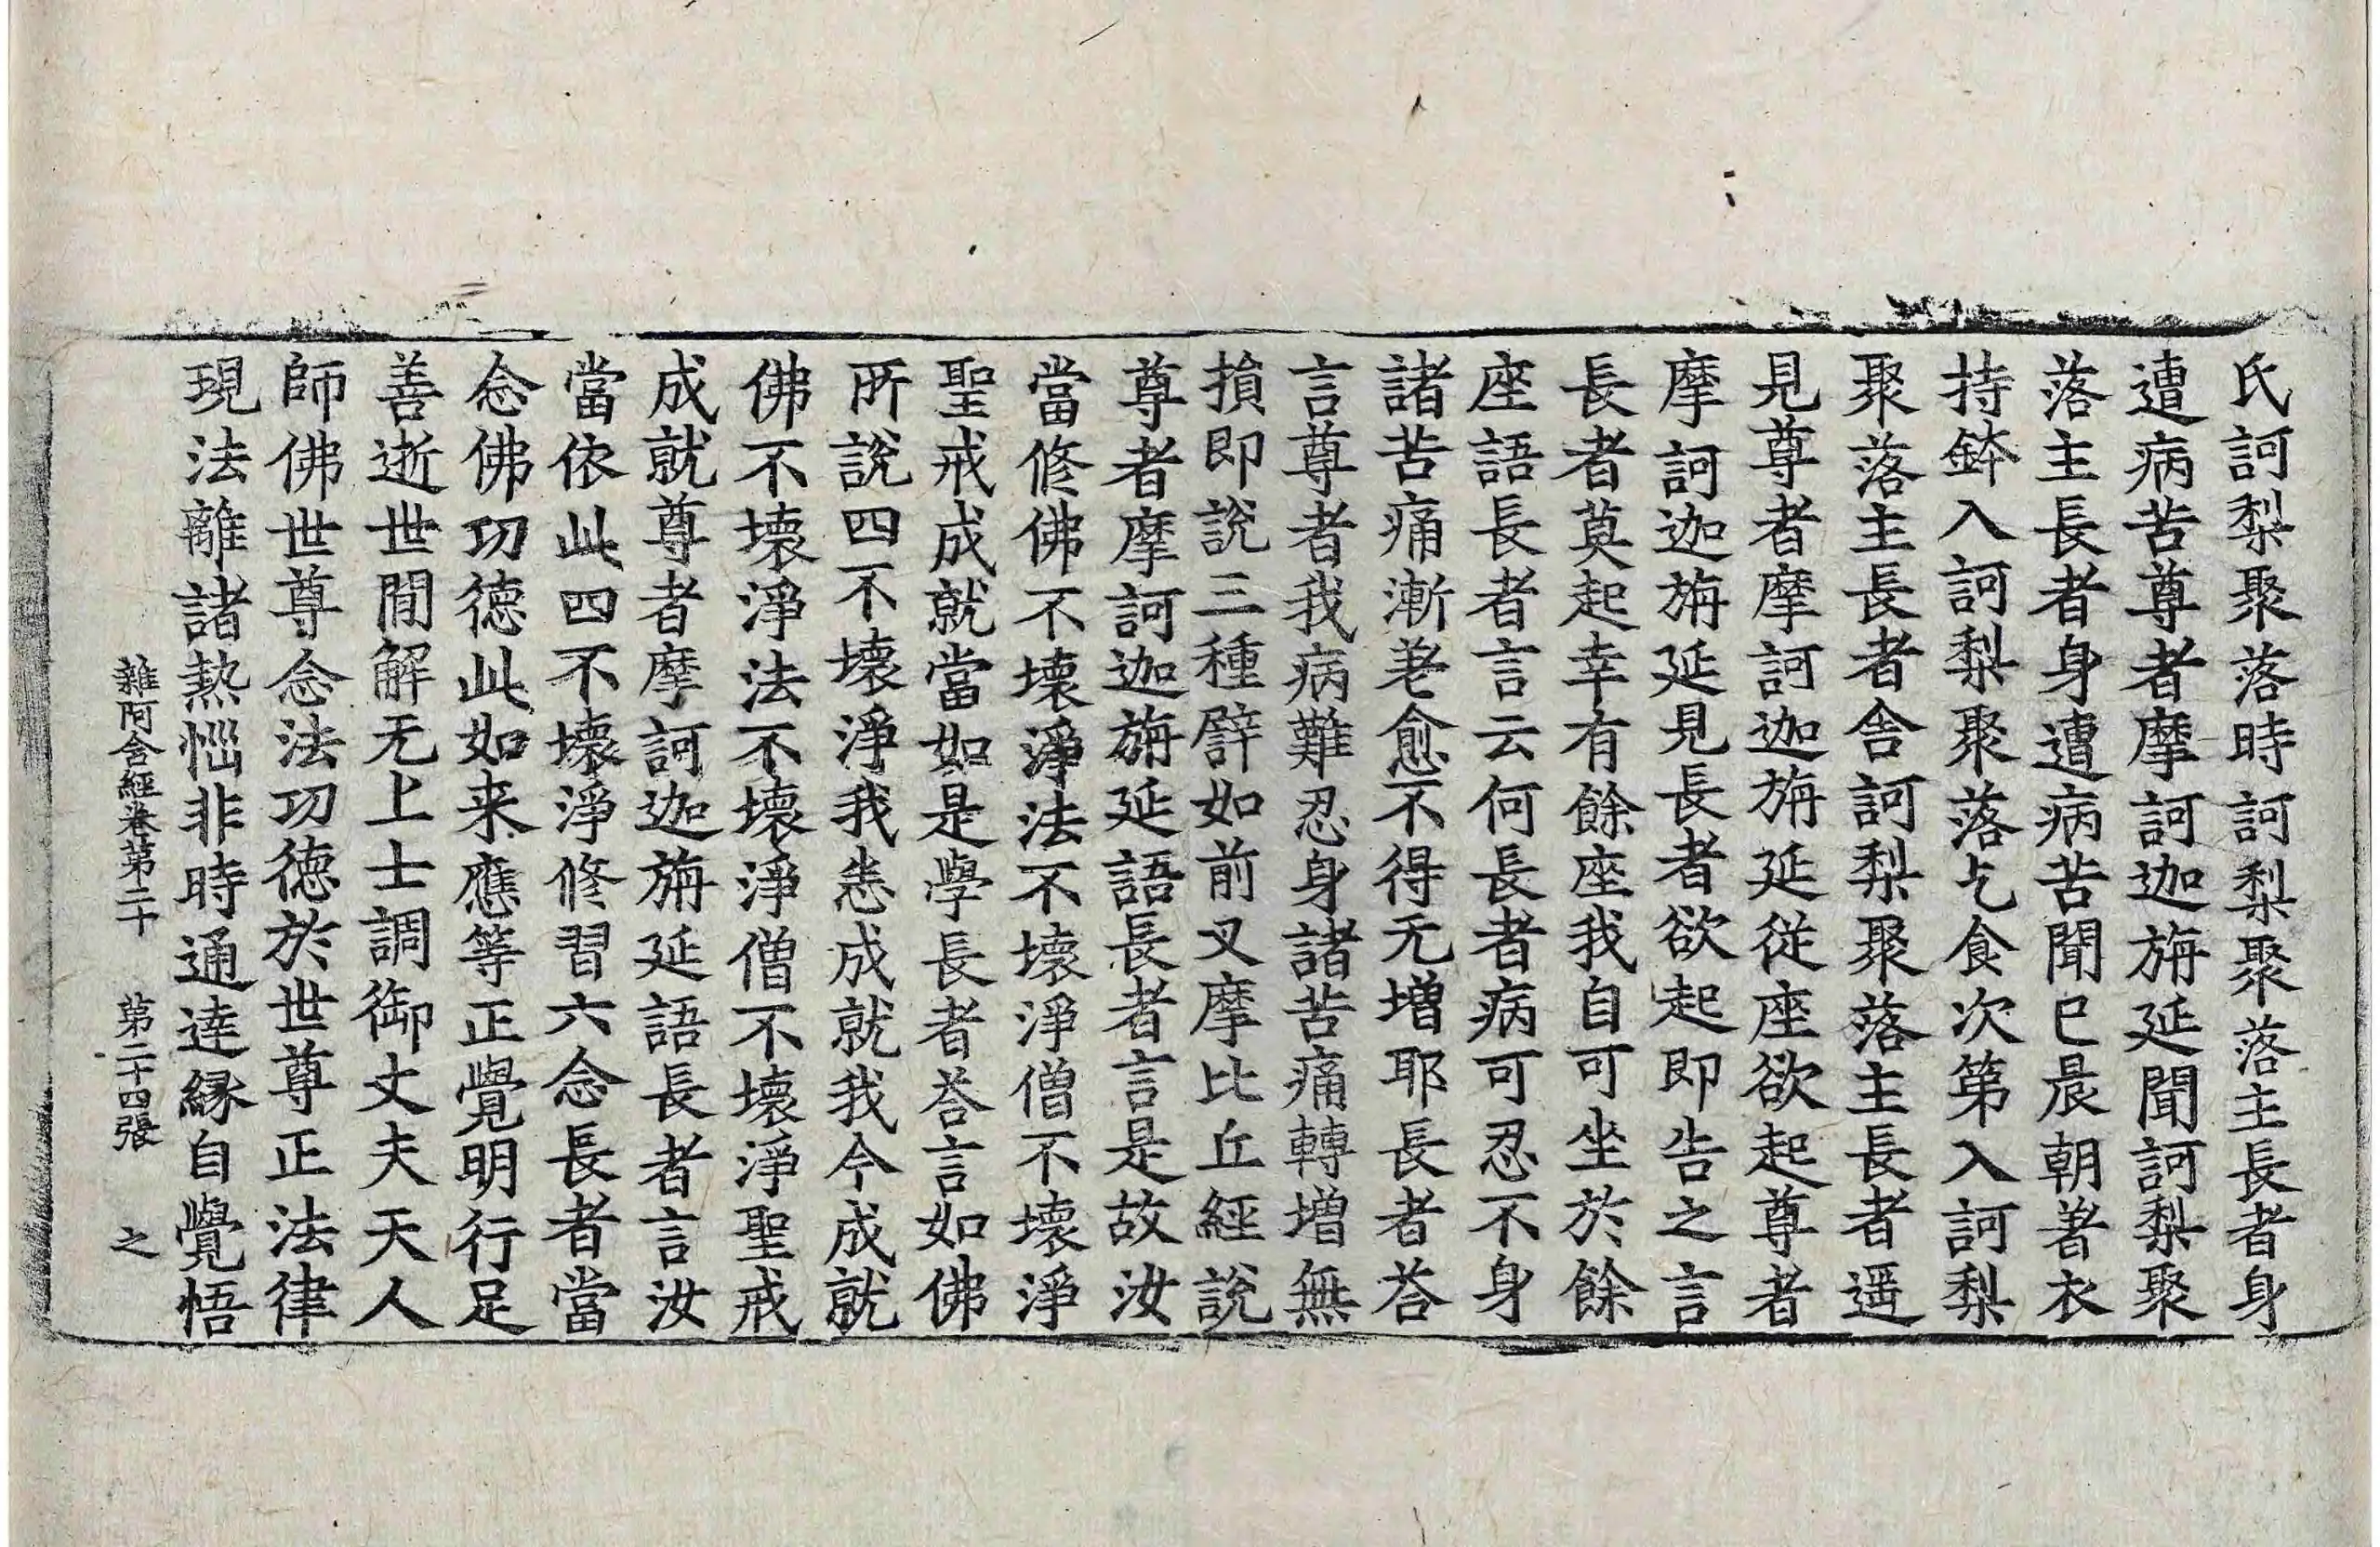 氏訶梨聚落時訶梨聚落主長者身
遭病苦尊者摩訶迦旃延聞訶梨聚
落主長者身遭病苦聞已晨朝著衣
持鉢入訶梨聚落乞食次第入訶梨
聚落主長者舎訶梨聚落主長者遥
見尊者摩訶迦旃延従座欲起尊者
摩訶迦旃延見長者欲起即告之言
長者莫起幸有餘座我自可坐於餘
座語長者言云何長者病可忍不身
諸苦痛漸差愈不得无増耶長者荅
言尊者我病難忍身諸苦痛轉増無
損即說三種譬如前叉摩比丘經說
尊者摩訶迦旃延語長者言是故汝
當修佛不壞淨法不壞淨僧不壞淨
聖戒成就當如是學長者荅言如佛
所說四不壞淨我悉成就我今成就
佛不壞淨法不壞淨僧不壞淨聖戒
成就尊者摩訶迦旃延語長者言汝
當依此四不壞淨修習六念長者當
念佛功徳此如来應等正覺明行足
善逝世間解无上士調御丈夫天人
師佛世尊念法功徳於世尊正法律
現法離諸熱惱非時通達縁自覺悟
雜阿含經卷第二十 第二十四張 之